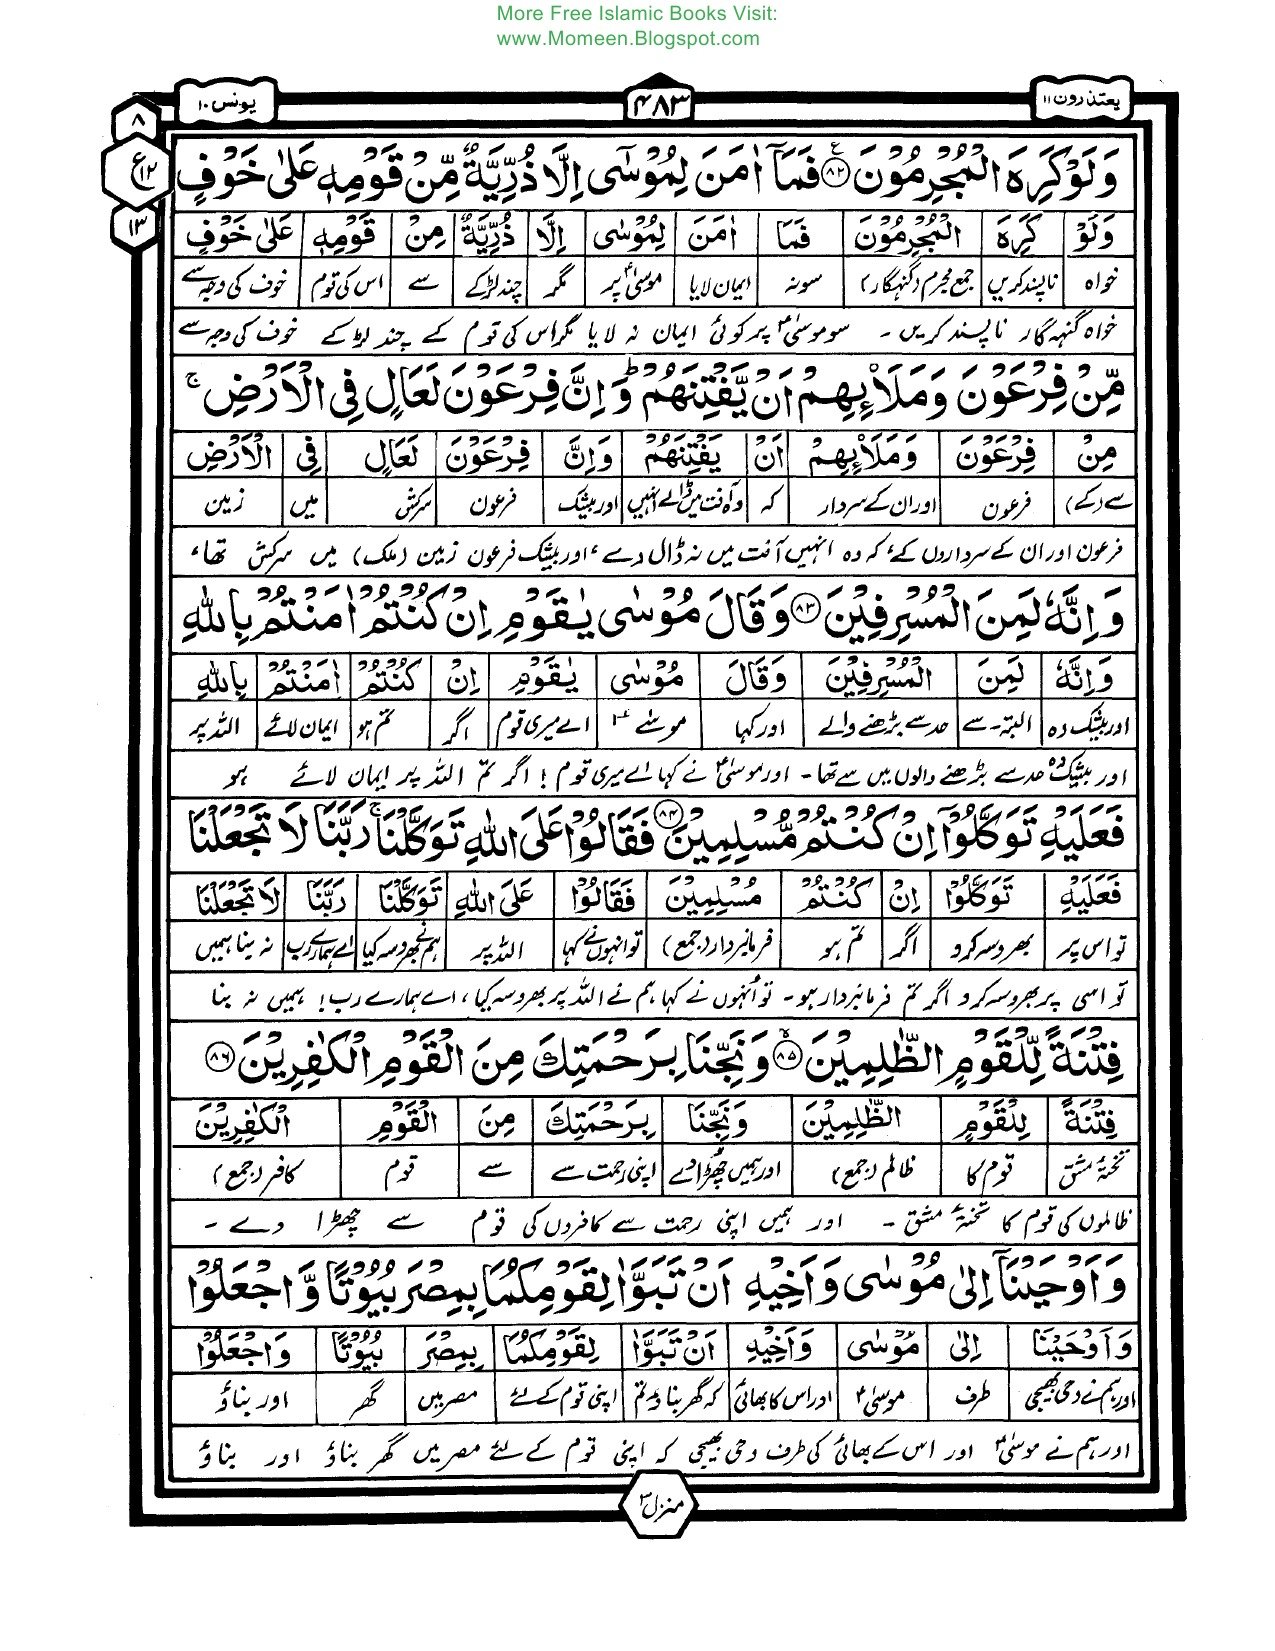 More Free Islamic Books Visit:
www.Momeen.Blogspot.com
یعتذرون ۱۱ ۴۸۳ یونس ۱۰
۸
ع ۱۲
۱۳
وَلَوْ كَرِهَ الْمُجْرِمُوْنَ ۸۲ فَمَاۤ اٰمَنَ لِمُوْسٰۤى اِلَّا ذُرِّيَّةٌ مِّنْ قَوْمِهٖ عَلٰى خَوْفٍ
وَلَوْ كَرِهَ الْمُجْرِمُوْنَ فَمَا اٰمَنَ لِمُوْسٰى اِلَّا ذُرِّيَّةٌ مِنْ قَوْمِهٖ عَلٰى خَوْفٍ
خواہ ناپسند کریں جمع مجرم (گنہگار) سو نہ ایمان لایا موسیٰؑ پر مگر چند لڑکے سے اس کی قوم خوف کی وجہ سے
خواہ گنہگار ناپسند کریں ۔ سو موسیٰؑ پر کوئی ایمان نہ لایا مگر اس کی قوم کے چند لڑکے خوف کی وجہ سے
مِّنْ فِرْعَوْنَ وَمَلَا۟ئِهِمْ اَنْ يَّفْتِنَهُمْ ؕ وَاِنَّ فِرْعَوْنَ لَعَالٍ فِى الْاَرْضِ ۚ
مِنْ فِرْعَوْنَ وَمَلَا۟ئِهِمْ اَنْ يَفْتِنَهُمْ وَاِنَّ فِرْعَوْنَ لَعَالٍ فِى الْاَرْضِ
سے (کے) فرعون اور ان کے سردار کہ وہ آفت میں ڈالے انہیں اور بیشک فرعون سرکش میں زمین
فرعون اور ان کے سرداروں کے، کہ وہ انہیں آفت میں نہ ڈال دے، اور بیشک فرعون زمین (ملک) میں سرکش تھا،
وَاِنَّهٗ لَمِنَ الْمُسْرِفِيْنَ ۸۳ وَقَالَ مُوْسٰى يٰقَوْمِ اِنْ كُنْتُمْ اٰمَنْتُمْ بِاللّٰهِ
وَاِنَّهٗ لَمِنَ الْمُسْرِفِيْنَ وَقَالَ مُوْسٰى يٰقَوْمِ اِنْ كُنْتُمْ اٰمَنْتُمْ بِاللّٰهِ
اور بیشک وہ البتہ ۔ سے حد سے بڑھنے والے اور کہا موسیٰؑ اے میری قوم اگر تم ہو ایمان لائے اللہ پر
اور بیشک وہ حد سے بڑھنے والوں میں سے تھا ۔ اور موسیٰؑ نے کہا اے میری قوم ! اگر تم اللہ پر ایمان لائے ہو
فَعَلَيْهِ تَوَكَّلُوْۤا اِنْ كُنْتُمْ مُّسْلِمِيْنَ ۸۴ فَقَالُوْا عَلَى اللّٰهِ تَوَكَّلْنَا ۚ رَبَّنَا لَا تَجْعَلْنَا
فَعَلَيْهِ تَوَكَّلُوْا اِنْ كُنْتُمْ مُسْلِمِيْنَ فَقَالُوْا عَلَى اللّٰهِ تَوَكَّلْنَا رَبَّنَا لَا تَجْعَلْنَا
تو اس پر بھروسہ کرو اگر تم ہو فرمانبردار (جمع) تو انہوں نے کہا اللہ پر ہم نے بھروسہ کیا اے ہمارے رب نہ بنا ہمیں
تو اسی پر بھروسہ کرو اگر تم فرمانبردار ہو ۔ تو اُنہوں نے کہا ہم نے اللہ پر بھروسہ کیا، اے ہمارے رب! ہمیں نہ بنا
فِتْنَةً لِّلْقَوْمِ الظّٰلِمِيْنَ ۸۵ وَنَجِّنَا بِرَحْمَتِكَ مِنَ الْقَوْمِ الْكٰفِرِيْنَ ۸۶
فِتْنَةً لِلْقَوْمِ الظّٰلِمِيْنَ وَنَجِّنَا بِرَحْمَتِكَ مِنَ الْقَوْمِ الْكٰفِرِيْنَ
تختۂ مشق قوم کا ظالم (جمع) اور ہمیں چھڑا دے اپنی رحمت سے سے قوم کافر (جمع)
ظالموں کی قوم کا تختۂ مشق ۔ اور ہمیں اپنی رحمت سے کافروں کی قوم سے چھڑا دے ۔
وَاَوْحَيْنَاۤ اِلٰى مُوْسٰى وَاَخِيْهِ اَنْ تَبَوَّاٰ لِقَوْمِكُمَا بِمِصْرَ بُيُوْتًا وَّاجْعَلُوْا
وَاَوْحَيْنَا اِلٰى مُوْسٰى وَاَخِيْهِ اَنْ تَبَوَّاٰ لِقَوْمِكُمَا بِمِصْرَ بُيُوْتًا وَاجْعَلُوْا
اور ہم نے وحی بھیجی طرف موسیٰؑ اور اس کا بھائی کہ گھر بناؤ تم اپنی قوم کے لئے مصر میں گھر اور بناؤ
اور ہم نے موسیٰؑ اور اس کے بھائی کی طرف وحی بھیجی کہ اپنی قوم کے لئے مصر میں گھر بناؤ اور بناؤ
منزل ۳